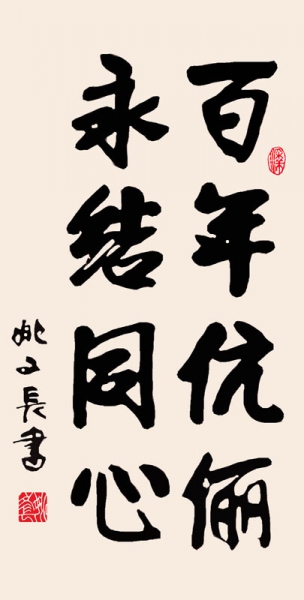 百年伉俪
永结同心
姚文長書